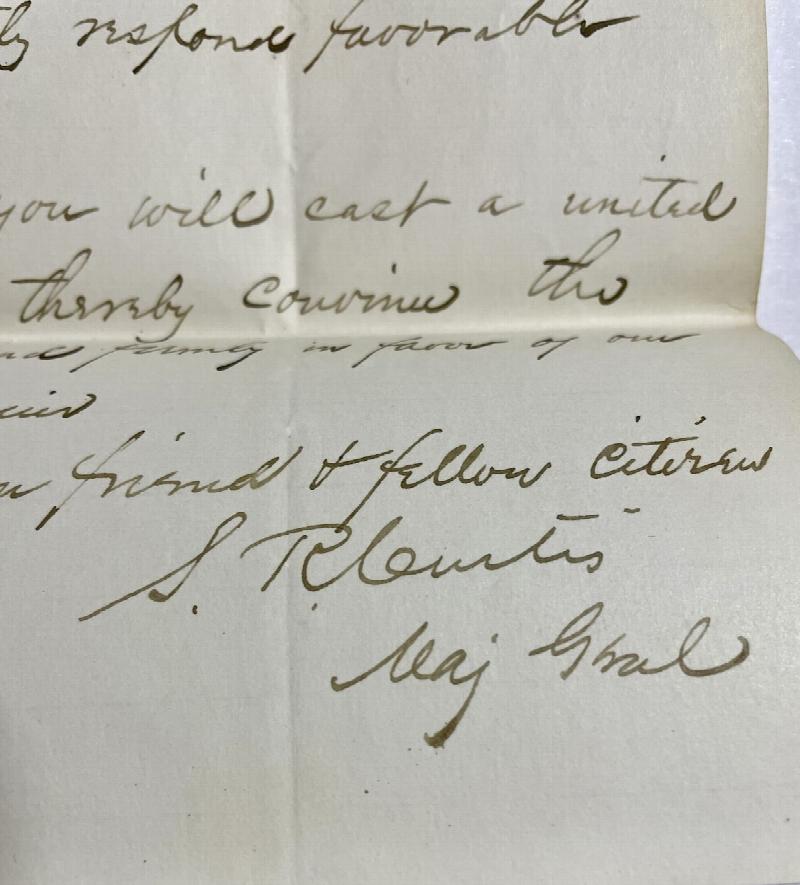 respond favorable
you will cast a united
thereby convince the
in favor of our
friend & fellow citizen
S. R. Curtis
Maj Genal